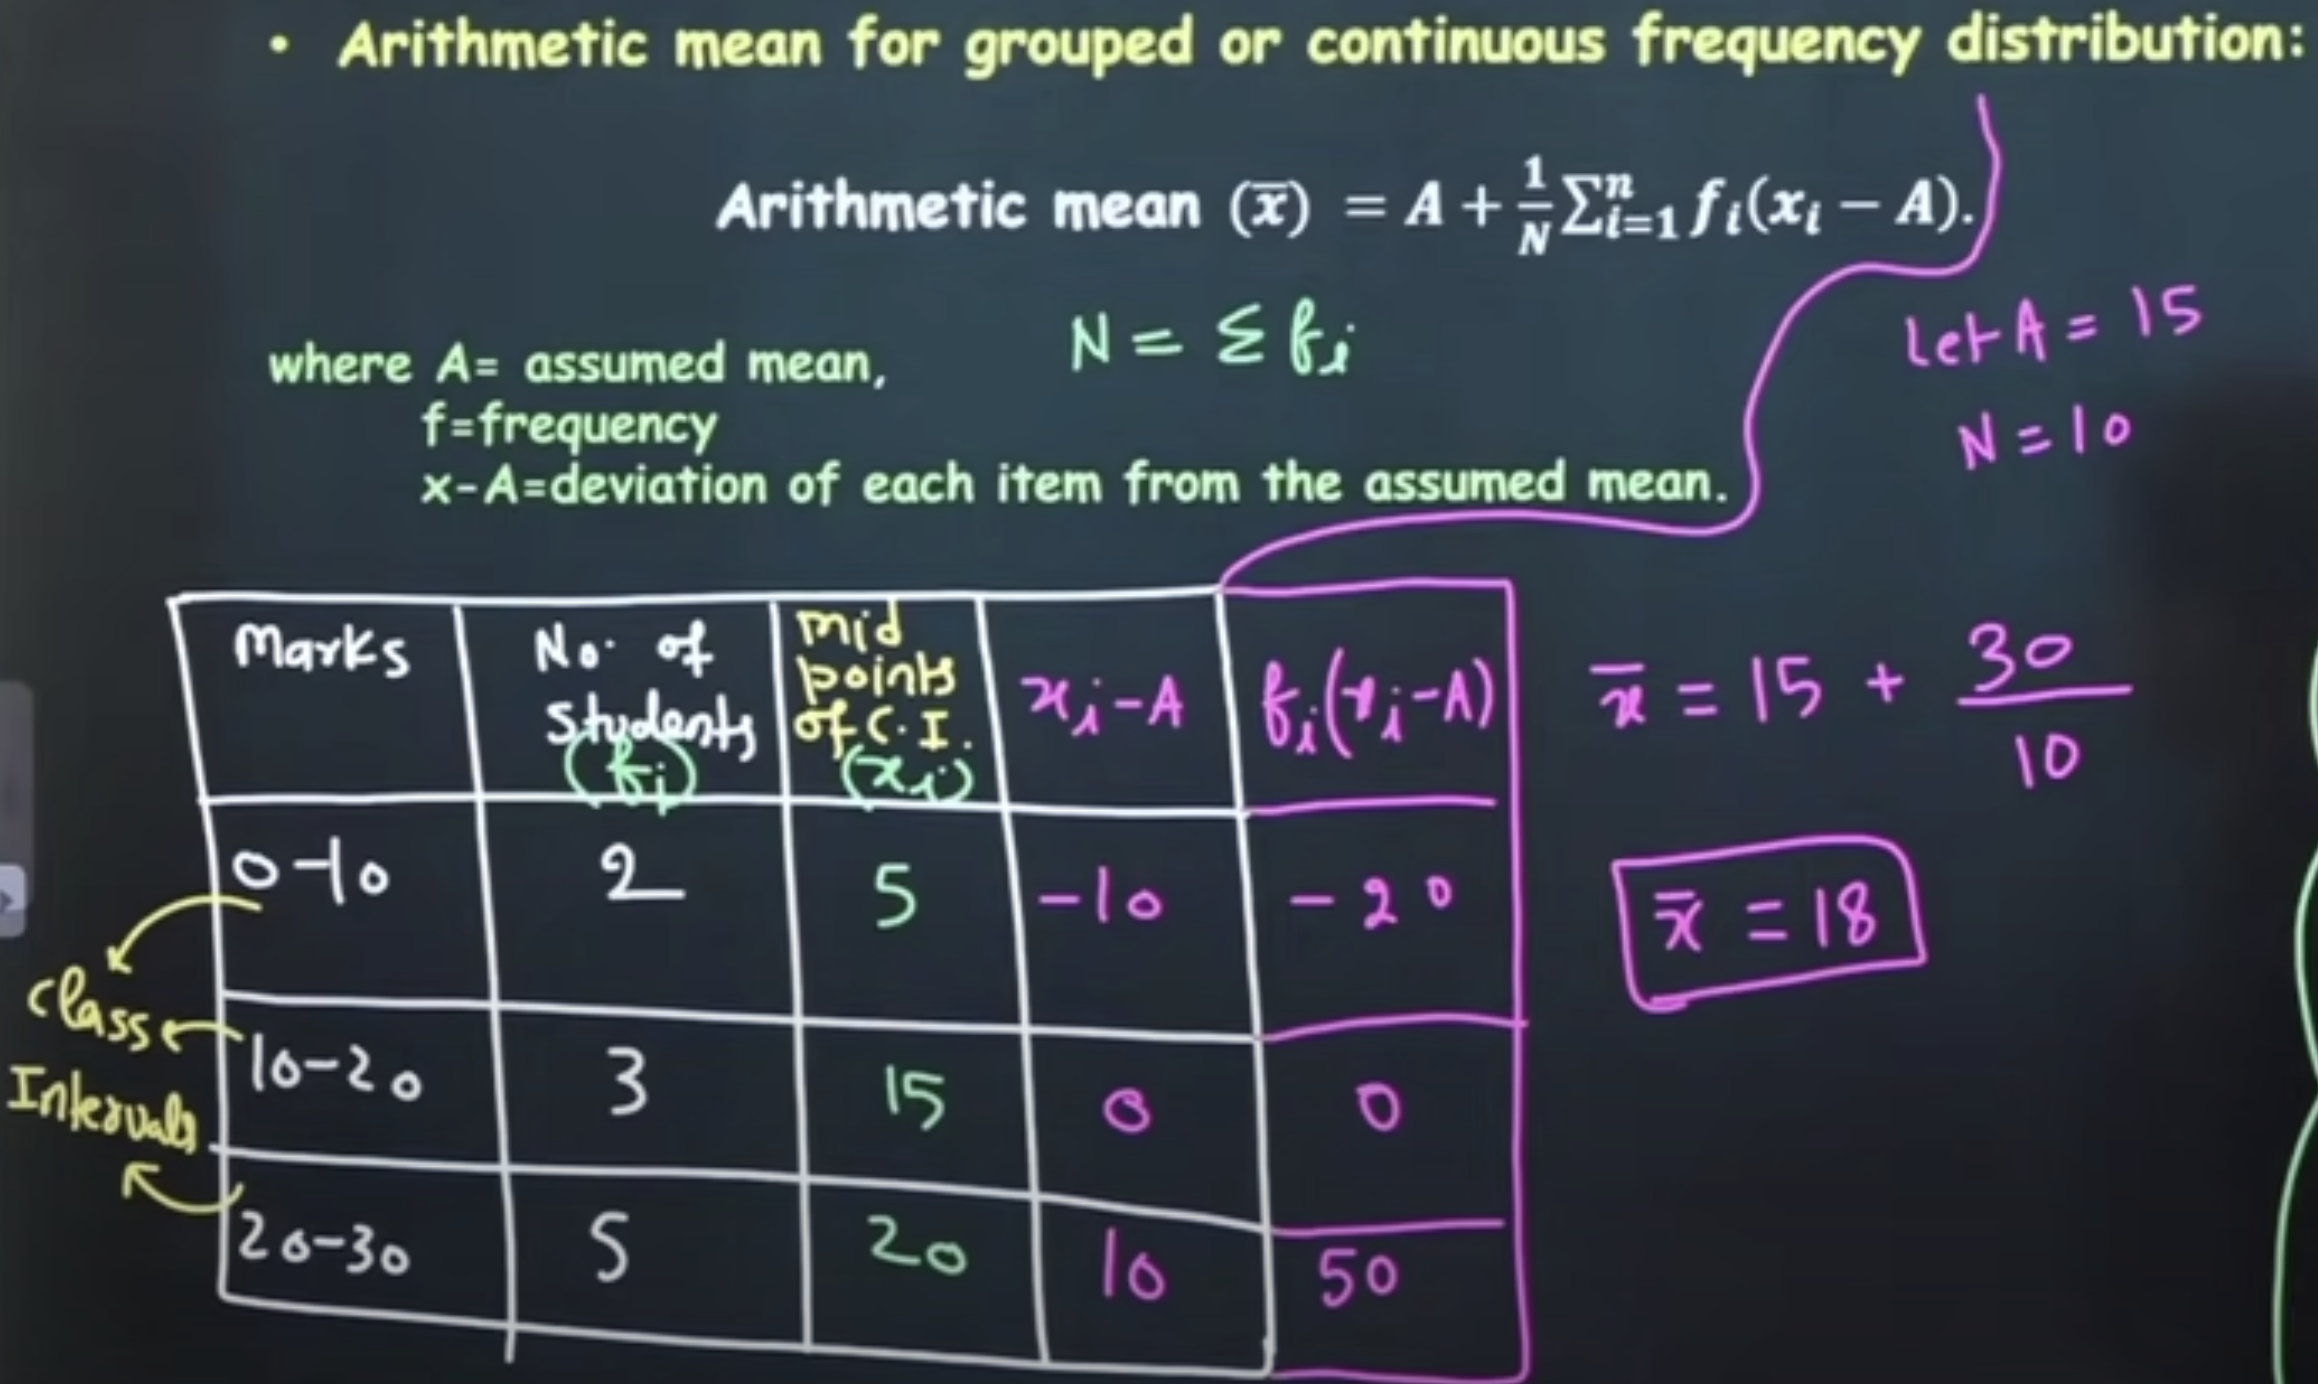 • Arithmetic mean for grouped or continuous frequency distribution:
Arithmetic mean (x̅) = A + 1/N ∑ⁿᵢ₌₁ fᵢ(xᵢ − A).
N = Σ fᵢ
let A = 15
N = 10
where A= assumed mean,
f=frequency
x-A=deviation of each item from the assumed mean.
Marks
No. of
Students
(fᵢ)
Mid
points
of C.I.
(xᵢ)
xᵢ-A
fᵢ(xᵢ-A)
0-10 2 5 -10 -20
10-20 3 15 0 0
20-30 5 20 10 50
Class
Intervals
x̅ = 15 + 30/10
x̅ = 18